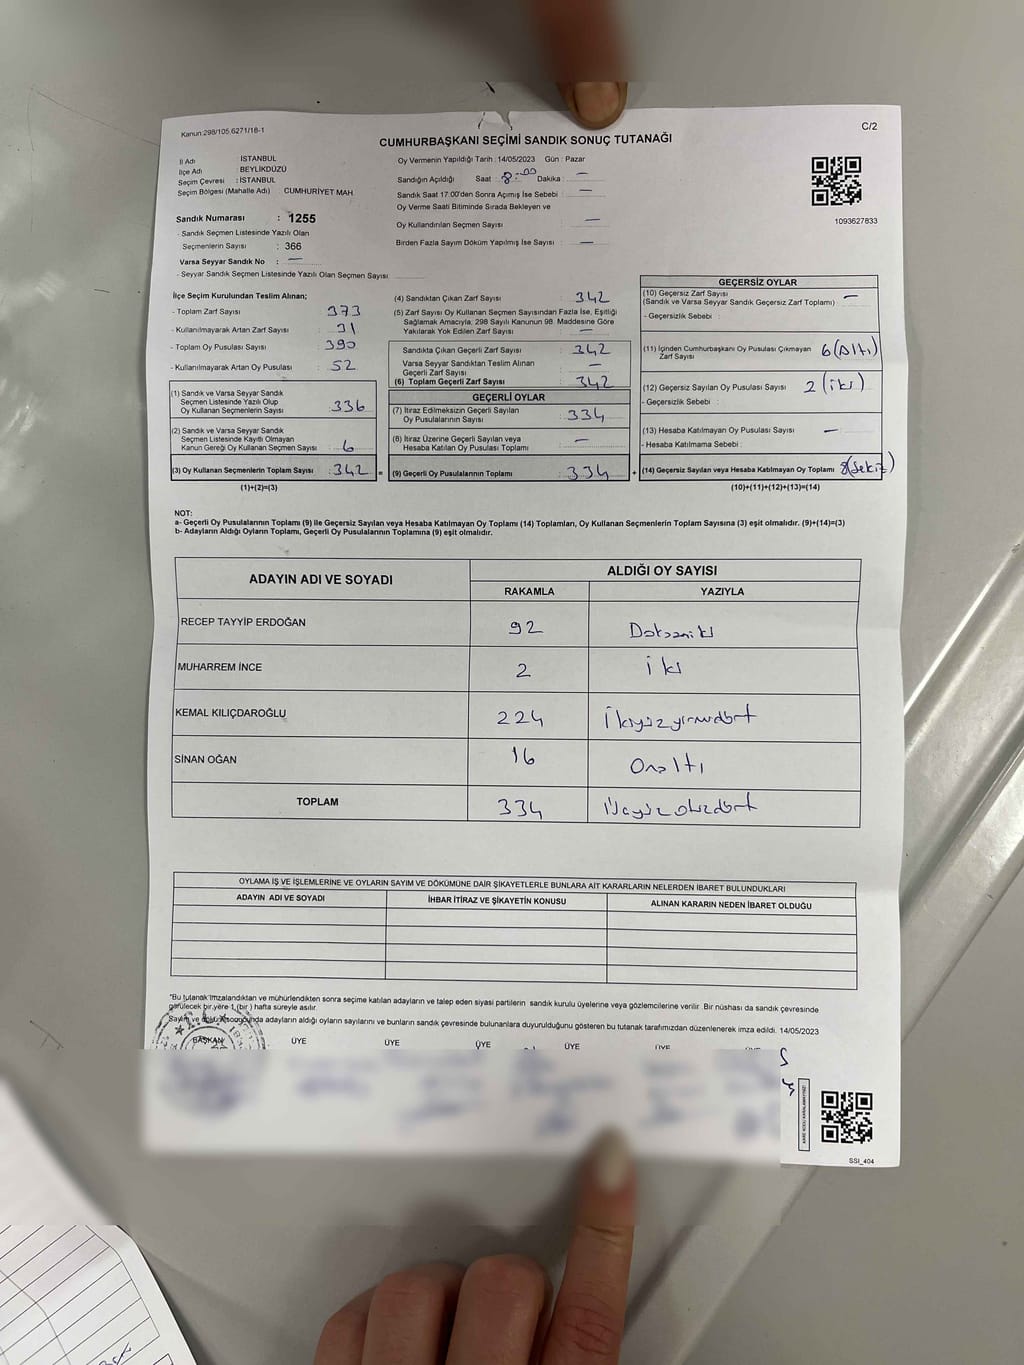 Kanun:298/105.6271/18-1
C/2
CUMHURBAŞKANI SEÇİMİ SANDIK SONUÇ TUTANAĞI
İl Adı İSTANBUL
İlçe Adı : BEYLİKDÜZÜ
Seçim Çevresi : İSTANBUL
Seçim Bölgesi (Mahalle Adı) CUMHURİYET MAH.
Sandık Numarası : 1255
- Sandık Seçmen Listesinde Yazılı Olan
Seçmenlerin Sayısı : 366
Varsa Seyyar Sandık No : —
- Seyyar Sandık Seçmen Listesinde Yazılı Olan Seçmen Sayısı
Oy Vermenin Yapıldığı Tarih : 14/05/2023 Gün : Pazar
Sandığın Açıldığı Saat : 8:00 Dakika : —
Sandık Saat 17.00'den Sonra Açımış İse Sebebi : —
Oy Verme Saati Bitiminde Sırada Bekleyen ve
Oy Kullandırılan Seçmen Sayısı : —
Birden Fazla Sayım Döküm Yapılmış İse Sayısı : —
1093627833
İlçe Seçim Kurulundan Teslim Alınan;
- Toplam Zarf Sayısı : 373
- Kullanılmayarak Artan Zarf Sayısı : 31
- Toplam Oy Pusulası Sayısı : 390
- Kullanılmayarak Artan Oy Pusulası : 52
(1) Sandık ve Varsa Seyyar Sandık
Seçmen Listesinde Yazılı Olup
Oy Kullanan Seçmenlerin Sayısı : 336
(2) Sandık ve Varsa Seyyar Sandık
Seçmen Listesinde Kayıtlı Olmayan
Kanun Gereği Oy Kullanan Seçmen Sayısı : 6
(3) Oy Kullanan Seçmenlerin Toplam Sayısı : 342 =
(1)+(2)=(3)
(4) Sandıktan Çıkan Zarf Sayısı : 342
(5) Zarf Sayısı Oy Kullanan Seçmen Sayısından Fazla İse, Eşitliği
Sağlamak Amacıyla, 298 Sayılı Kanunun 98. Maddesine Göre
Yakılarak Yok Edilen Zarf Sayısı : —
Sandıkta Çıkan Geçerli Zarf Sayısı : 342
Varsa Seyyar Sandıktan Teslim Alınan
Geçerli Zarf Sayısı : —
(6) Toplam Geçerli Zarf Sayısı : 342
GEÇERLİ OYLAR
(7) İtiraz Edilmeksizin Geçerli Sayılan
Oy Pusulalarının Sayısı : 334
(8) İtiraz Üzerine Geçerli Sayılan veya
Hesaba Katılan Oy Pusulası Toplamı : —
(9) Geçerli Oy Pusulalarının Toplamı : 334 +
GEÇERSİZ OYLAR
(10) Geçersiz Zarf Sayısı : —
(Sandık ve Varsa Seyyar Sandık Geçersiz Zarf Toplamı)
- Geçersizlik Sebebi :
(11) İçinden Cumhurbaşkanı Oy Pusulası Çıkmayan : 6 (Altı)
Zarf Sayısı
(12) Geçersiz Sayılan Oy Pusulası Sayısı : 2 (iki)
- Geçersizlik Sebebi :
(13) Hesaba Katılmayan Oy Pusulası Sayısı : —
- Hesaba Katılmama Sebebi :
(14) Geçersiz Sayılan veya Hesaba Katılmayan Oy Toplamı : 8 (Sekiz)
(10)+(11)+(12)+(13)=(14)
NOT:
a- Geçerli Oy Pusulalarının Toplamı (9) ile Geçersiz Sayılan veya Hesaba Katılmayan Oy Toplamı (14) Toplamları, Oy Kullanan Seçmenlerin Toplam Sayısına (3) eşit olmalıdır. (9)+(14)=(3)
b- Adayların Aldığı Oyların Toplamı, Geçerli Oy Pusulalarının Toplamına (9) eşit olmalıdır.
ADAYIN ADI VE SOYADI
ALDIĞI OY SAYISI
RAKAMLA YAZIYLA
RECEP TAYYİP ERDOĞAN 92 Doksaniki
MUHARREM İNCE 2 iki
KEMAL KILIÇDAROĞLU 224 İkiyüzyirmidört
SİNAN OĞAN 16 Onaltı
TOPLAM 334 Üçyüzotuzdört
OYLAMA İŞ VE İŞLEMLERİNE VE OYLARIN SAYIM VE DÖKÜMÜNE DAİR ŞİKAYETLERLE BUNLARA AİT KARARLARIN NELERDEN İBARET BULUNDUKLARI
ADAYIN ADI VE SOYADI İHBAR İTİRAZ VE ŞİKAYETİN KONUSU ALINAN KARARIN NEDEN İBARET OLDUĞU
"Bu tutanak imzalandıktan ve mühürlendikten sonra seçime katılan adayların ve talep eden siyasi partilerin sandık kurulu üyelerine veya gözlemcilerine verilir. Bir nüshası da sandık çevresinde
görülecek bir yere 1 (bir) hafta süreyle asılır.
Sayım ve döküm sonucunda adayların aldığı oyların sayılarını ve bunların sandık çevresinde bulunanlara duyurulduğunu gösteren bu tutanak tarafımızdan düzenlenerek imza edildi. 14/05/2023
BAŞKAN ÜYE ÜYE ÜYE ÜYE ÜYE ÜYE
SSI_404